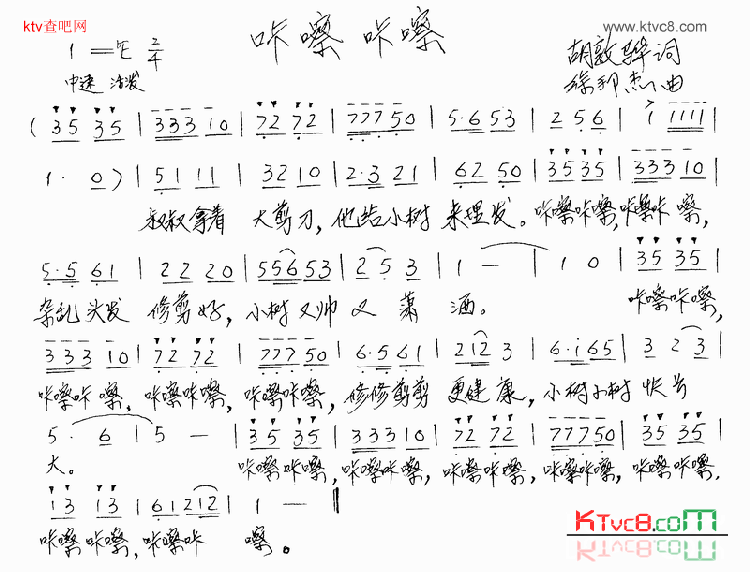 ktv查吧网
www.ktvc8.com
咔嚓咔嚓
1=E 2/4
中速 活发
胡敦骅 词
曲
( 35 35 | 333 10 | 72 72 | 777 50 | 5·6 53 | 2 56 | i iiii |
1· 0 ) | 51 11 | 32 10 | 2·3 21 | 62 50 | 35 35 | 333 10 |
叔叔拿着 大剪刀，他给小树 来理发。咔嚓咔嚓，咔嚓咔 嚓，
5·5 61 | 22 20 | 556 53 | 2 5 3 | 1 — | 1 0 | 35 35 |
杂乱头发 修剪好，小树又帅 又 萧 洒。 咔嚓咔嚓，
333 10 | 72 72 | 777 50 | 6·5 61 | 212 3 | 6·i 65 | 3 2 3 |
咔嚓咔 嚓，咔嚓咔嚓，咔嚓咔嚓，修修剪剪 更健 康，小树小树 快长
5· 6 | 5 — | 35 35 | 333 10 | 72 72 | 777 50 | 35 35 |
大。 咔嚓咔嚓，咔嚓咔嚓，咔嚓咔嚓，咔嚓咔嚓，咔嚓咔嚓，
i3 i3 | 61 212 | 1 — |
咔嚓咔嚓，咔嚓咔 嚓。
KTvc8.com